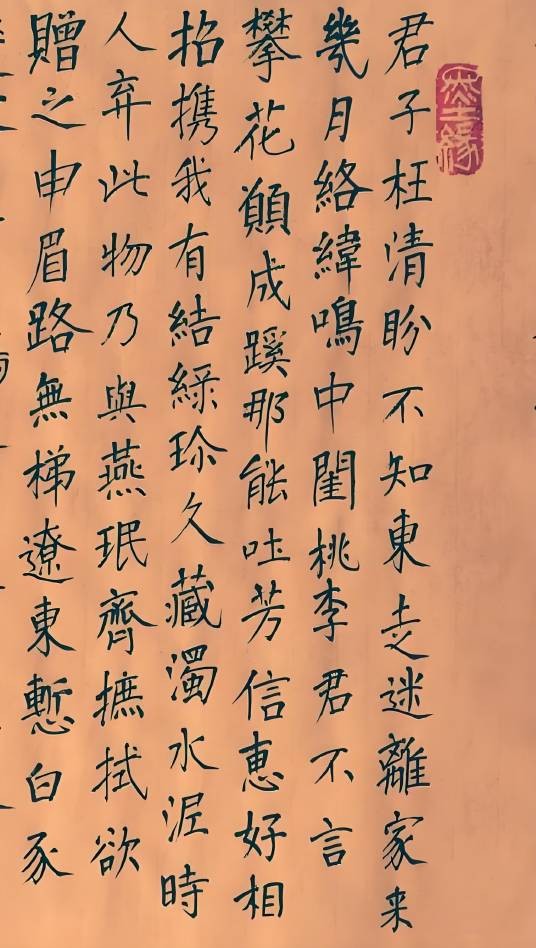 君子枉清盼不知東走迷離家来
幾月絡緯鳴中閨桃李君不言
攀花願成蹊那能吐芳信惠好相
招携我有結緑珍久藏濁水泥時
人弃此物乃與燕珉齊摭拭欲
贈之申眉路無梯遼東慙白豕